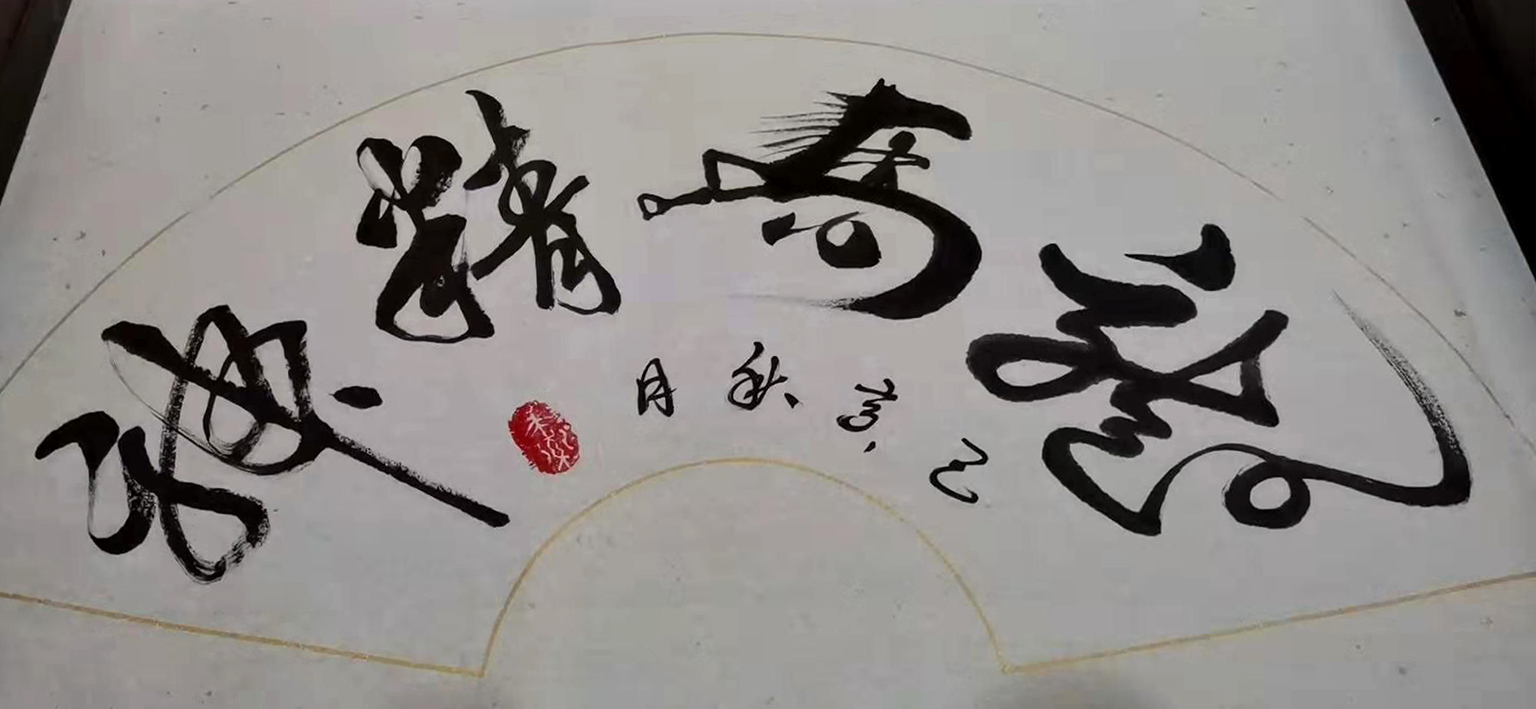 龍馬精神
己亥秋月